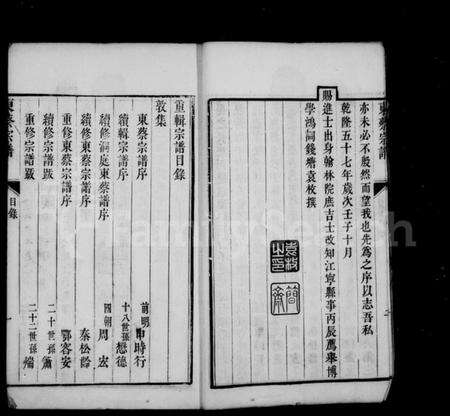 東蔡宗譜
亦未必不殷然而望我也先為之序以志吾私
乾隆五十七年歲次壬子十月
賜進士出身翰林院庶吉士改知江寧縣事丙辰薦舉博
學鴻詞錢塘袁枚撰
袁枚之印
簡齋
重輯宗譜目錄
敦集
東蔡宗譜序 前明申時行
續輯宗譜序 十八世孫懋德
續修洞庭東蔡宗譜序 國朝周宏
續修宗譜序 秦松齡
重修東蔡宗譜序 鄂容安
續修宗譜跋 二十世孫
重修宗譜跋 二十二世孫
東蔡宗譜
目錄